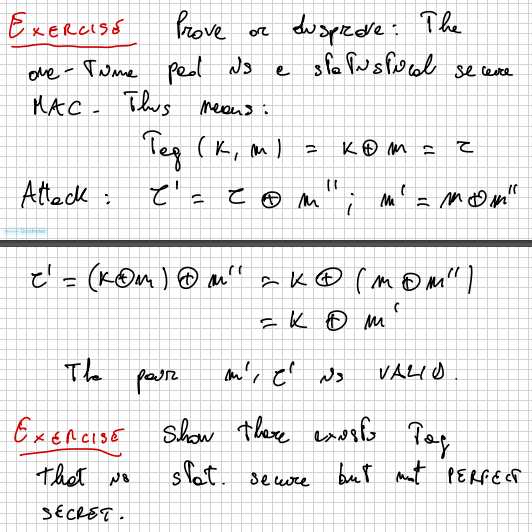 EXERCISE Prove or disprove: The
one-Time pad is a statistical secure
MAC. This means:
Tag (K, m) = K ⊕ m = τ
Attack: τ' = τ ⊕ m''; m' = m ⊕ m''
τ' = (K ⊕ m) ⊕ m'' = K ⊕ (m ⊕ m'')
= K ⊕ m'
The pair m', τ' is VALID.
EXERCISE Show there exists Tag
that is stat. secure but not PERFECT
SECRET.